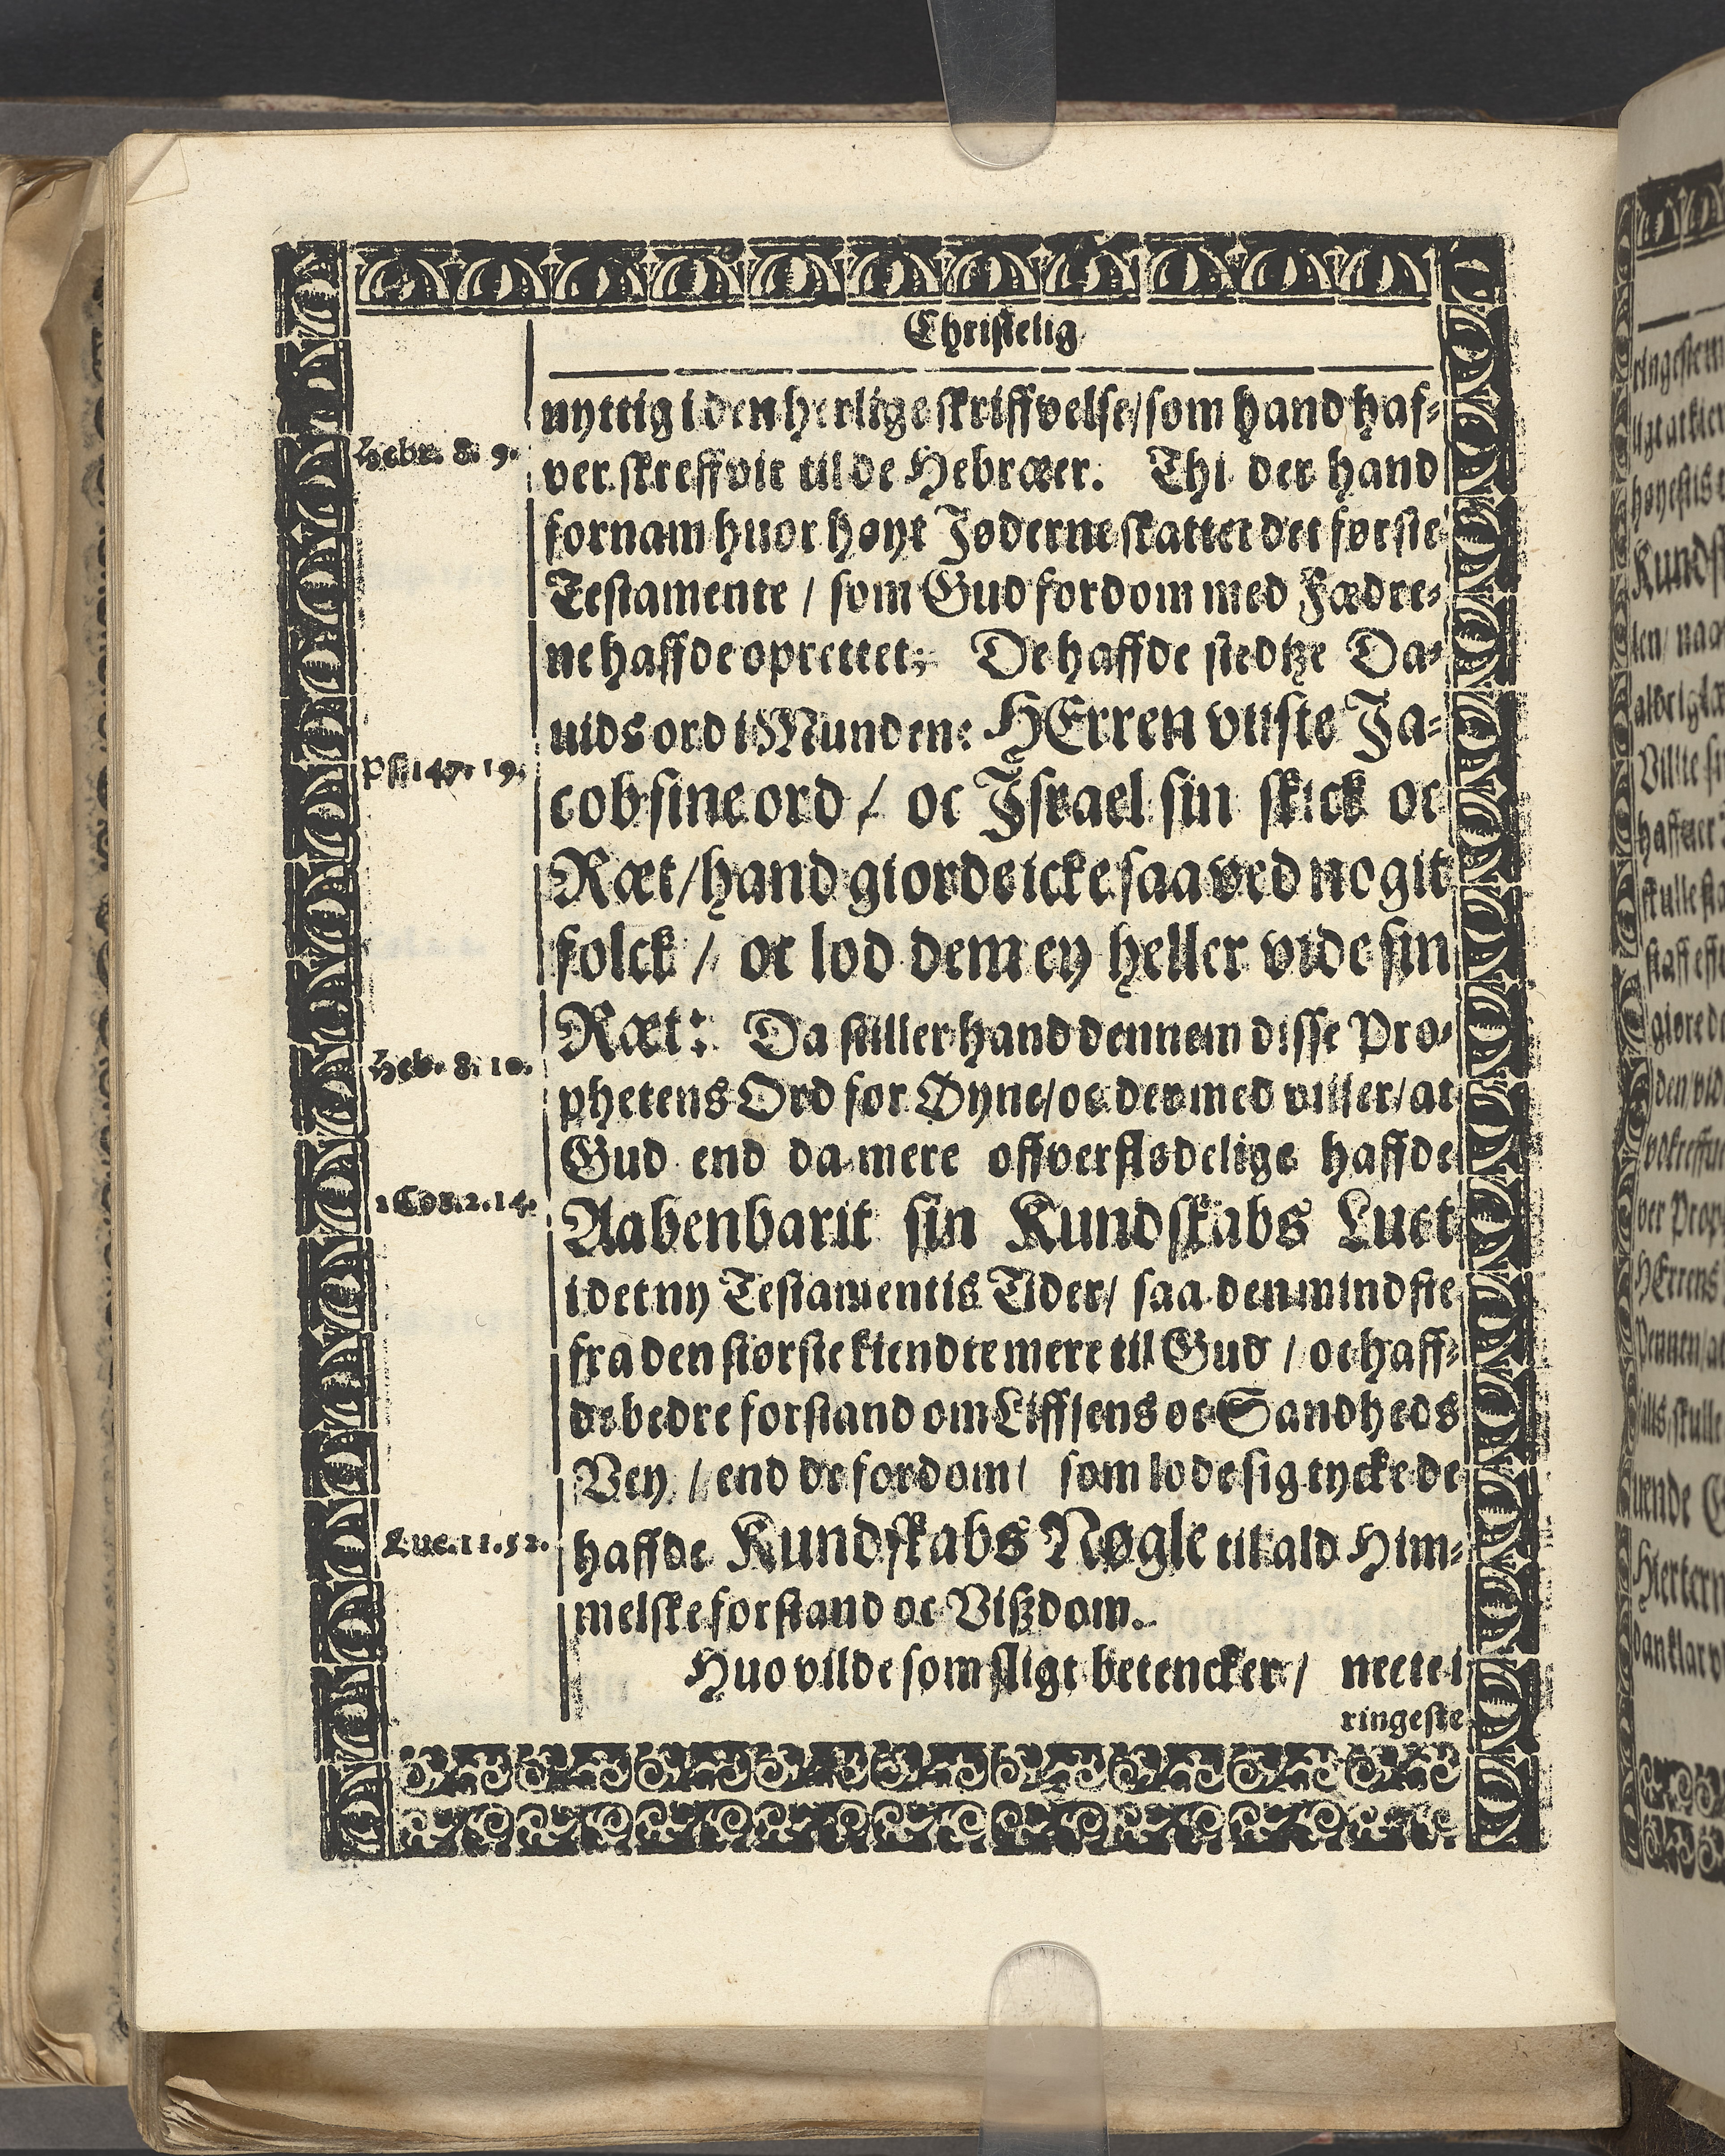 Christelig
nyttig i den herlige skriffvelse / som hand haf-
Hebr. 8. 9.
ver skreffvit til de Hebræer. Thi der hand
fornam huor høyt Jøderne skattet det første
Testamente / som Gud fordom med Fædre-
ne haffde oprettet; De haffde stedtze Da-
uids ord i Munden: HErren viiste Ja-
Ps. 147. 19.
cob sine ord / oc Israel sin skick oc
Ræt / hand giorde icke saa ved nogit
folck / oc lod dem ey heller vide sin
Ræt: Da stiller hand dennem disse Pro-
Heb. 8. 10.
phetens Ord for Øyne / oc der med viiser / at
Gud end da mere offverflødelige haffde
1 Cor. 2. 14.
Aabenbarit sin Kundskabs Luct
i det ny Testamentis Tider / saa den mindste
fra den største kiendte mere til Gud / oc haff-
de bedre forstand om Liffsens oc Sandheds
Vey / end de fordom / som lode sig tycke de
Luc. 11. 52.
haffde Kundskabs Nøgle til ald Him-
melske forstand oc Vißdom.
Huo vilde som sligt betencker / neete i
ringeste